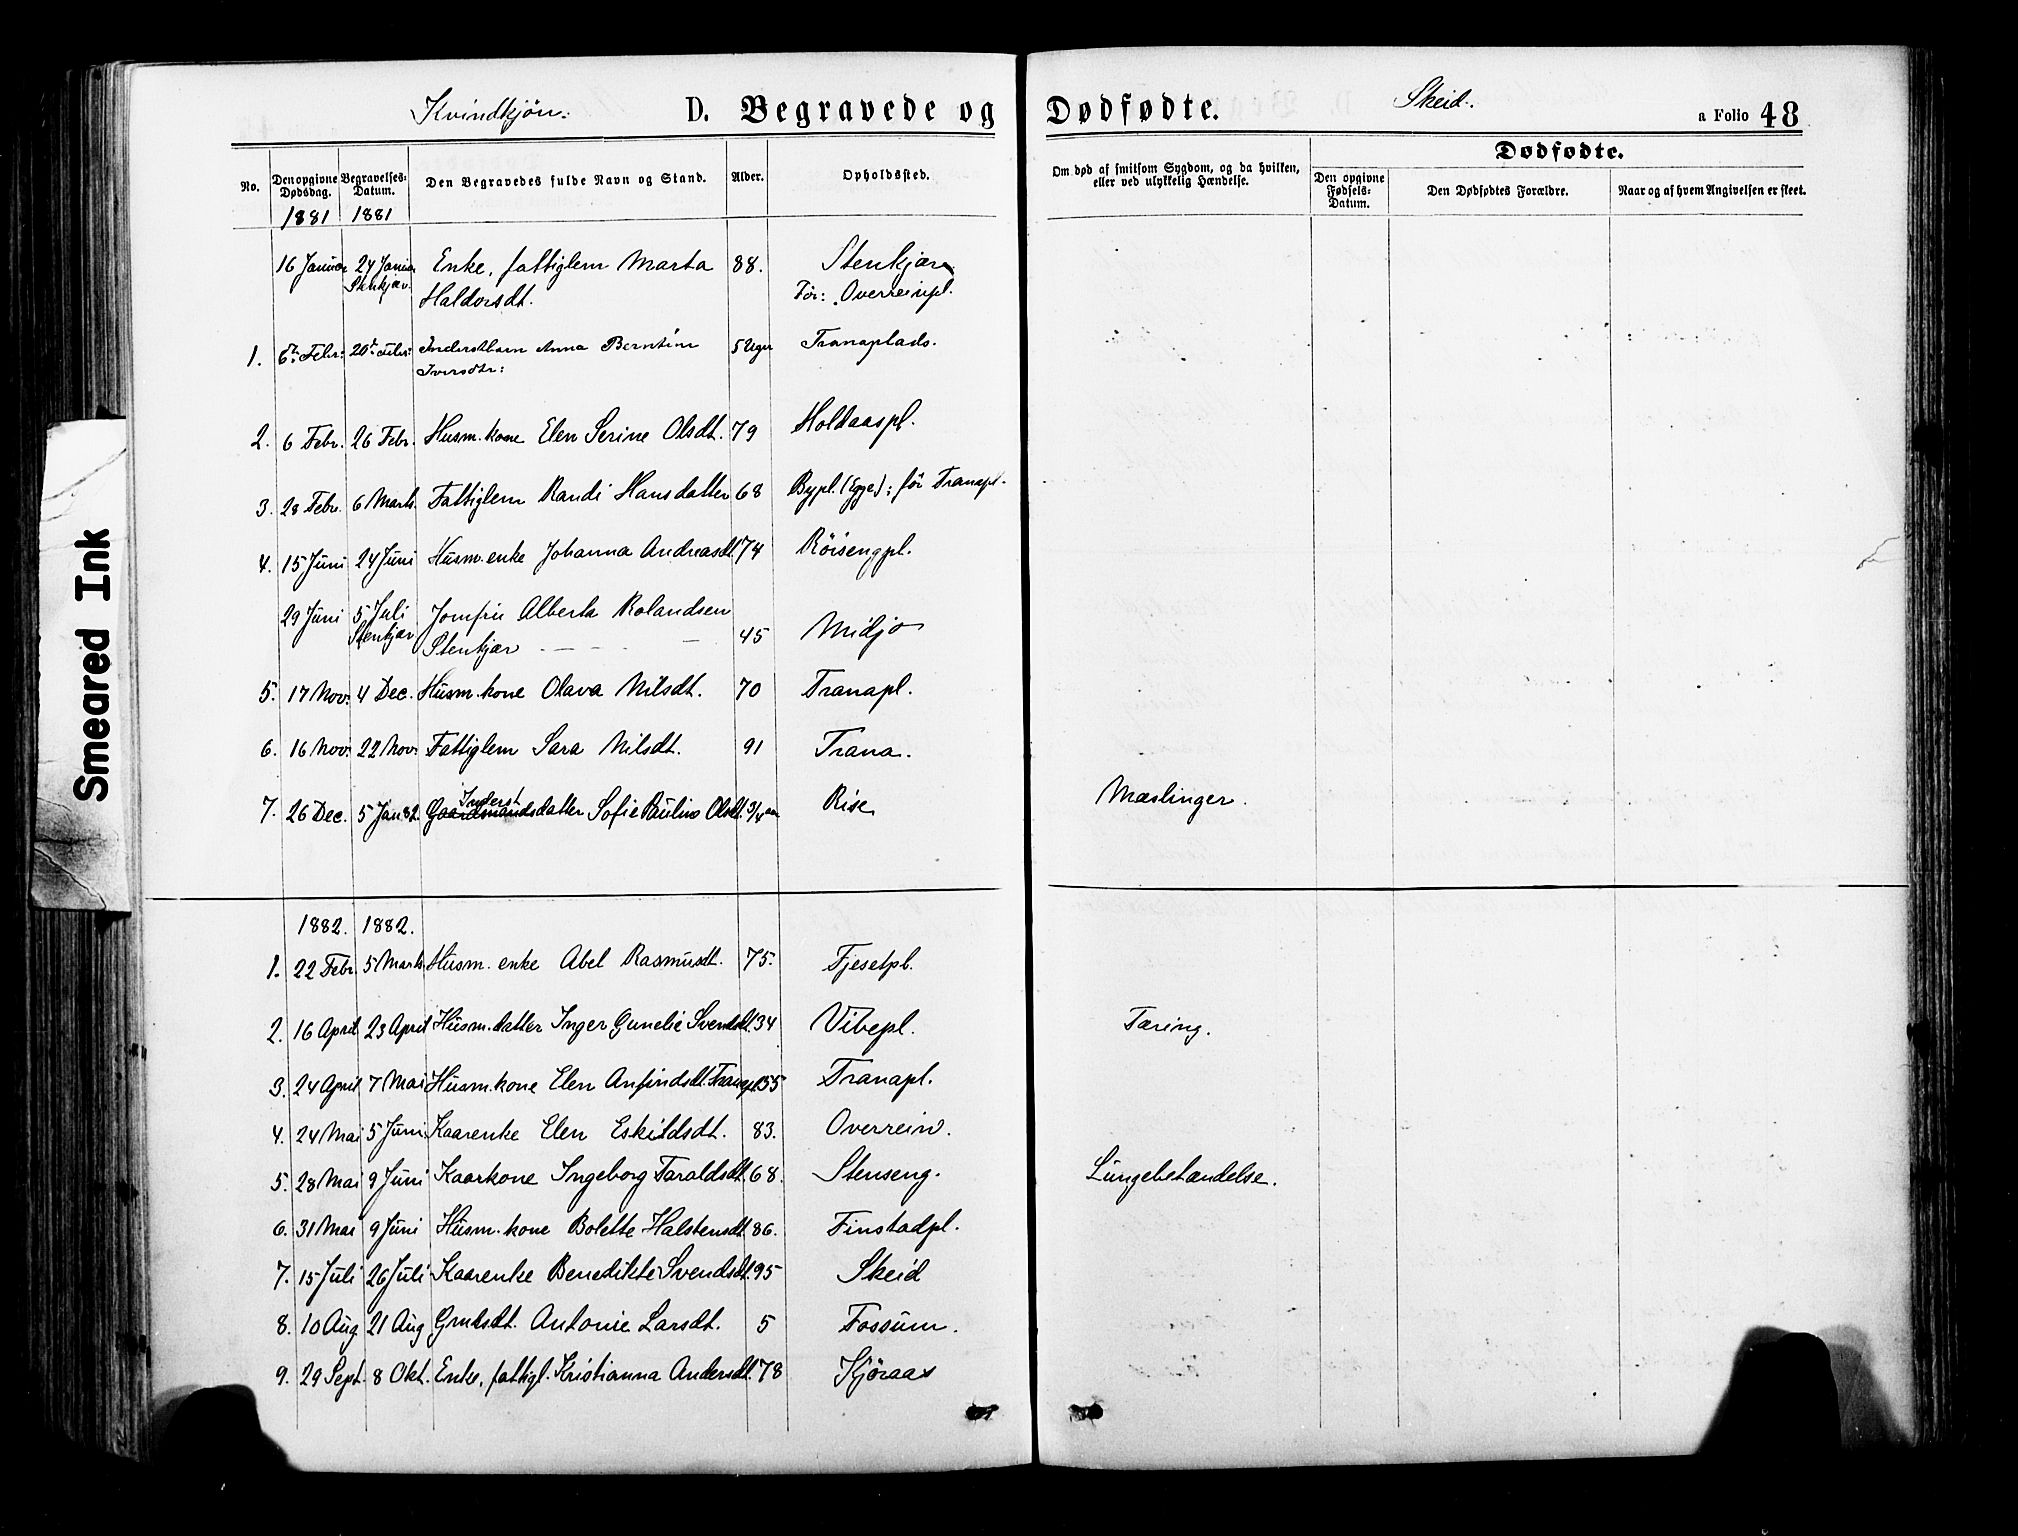 Smeared Ink
Kvindkjøn. D. Begravede og Dødfødte. Skeid. a Folio 48
No. Den opgivne Dødsdag. Begravelses-Datum. Den Begravedes fulde Navn og Stand. Alder. Opholdssted. Om død af smitsom Sygdom, og da hvilken, eller ved ulykkelig Hændelse. Dødfødte.
Den opgivne Fødsels-Datum. Den Dødfødtes Forældre. Naar og af hvem Angivelsen er skeet.
1881 1881
16 Januar 24 Januar Enke, fattiglem Marta 88. Stenkjær
Stenkjær. Haldorsdt. Før: Overreinpl.
1. 6te Febr: 20de Febr: Inderstbarn Anna Berntine 5 Uger Tranaplads.
Iversdtr:
2. 6 Febr. 26 Febr. Husm. kone Elen Serine Olsdt. 79 Holdaaspl.
3. 28 Febr. 6 Marts. Fattiglem Randi Hansdatter 68 Bypl. (Egge); før Tranapl.
4. 15 Juni 24 Juni Husm. enke Johanna Andreasdt. 74 Röisengpl.
29 Juni 5 Juli Jomfru Alberta Rolandsen
Stenkjær Stenkjær 45 Midjo
5. 17 Nov. 4 Dec. Husm. kone Olava Nilsdt. 70 Tranapl.
6. 16 Nov. 22 Nov. Fattiglem Sara Nilsdt. 91 Trana.
Inderst
7. 26 Dec. 5 Jan 82. Gaardmandsdatter Sofie Pauline Olsdt. 3/4 aar Rise Mæslinger.
1882. 1882.
1. 22 Febr. 5 Marts Husm. enke Abel Rasmusdt. 75. Fjesetpl.
2. 16 April 23 April Husm. datter Inger Gunelie Svendsdt. 34 Vibepl. Tæring.
3. 24 April 7 Mai Husm. kone Elen Anfindsdt. Tranapl. 55 Tranapl.
4. 24 Mai 5 Juni Kaarenke Elen Eskildsdt. 83. Overrein.
5. 28 Mai 9 Juni Kaarkone Ingeborg Taraldsdt. 68. Stenseng. Lungebetændelse.
6. 31 Mai 9 Juni Husm. kone Bolette Halstensdt. 86. Finstadpl.
7. 15 Juli 26 Juli Kaarenke Benedikte Svendsdt. 95 Skeid
8. 10 Aug 21 Aug Grmdsdt. Antonie Larsdt. 5 Fossum.
9. 29 Sept. 8 Okt. Enke, fattigl. Kristianna Andersdt. 78 Kjöraas